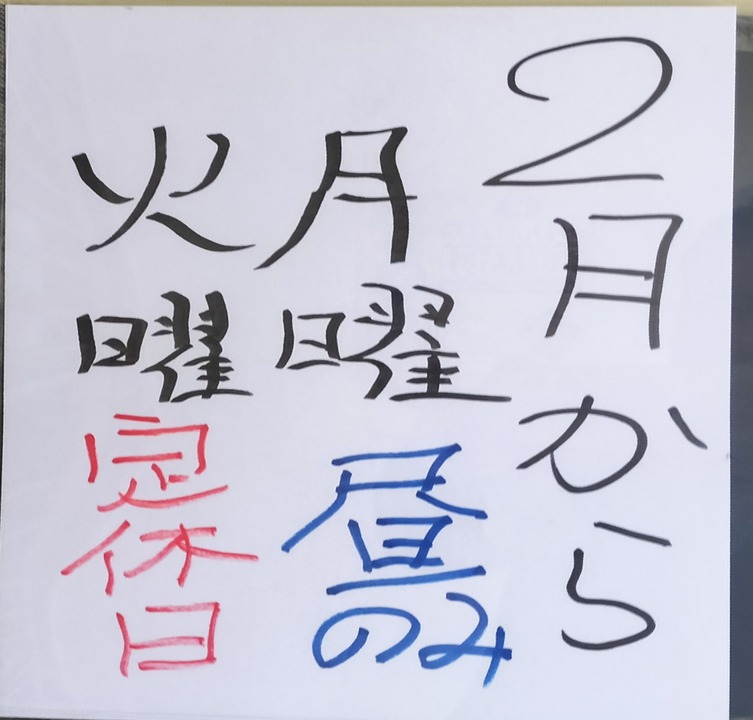 2月から
月曜昼のみ
火曜定休日